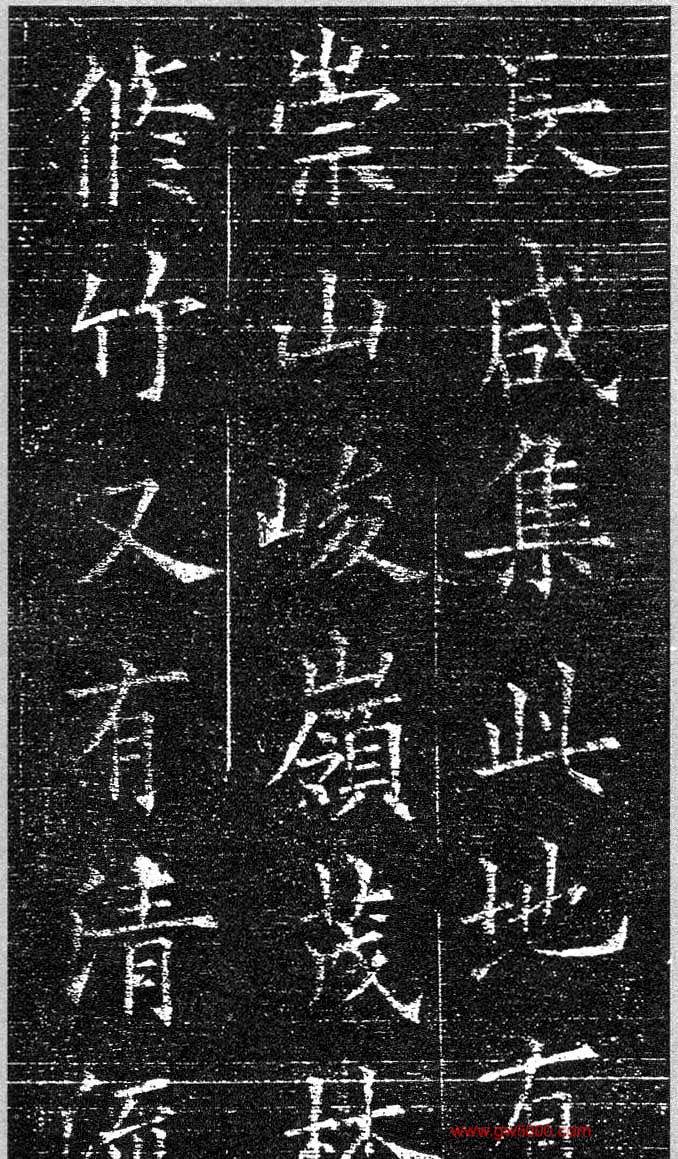 長咸集此地有
崇山峻嶺茂林
脩竹又有清流
www.gw5000.com